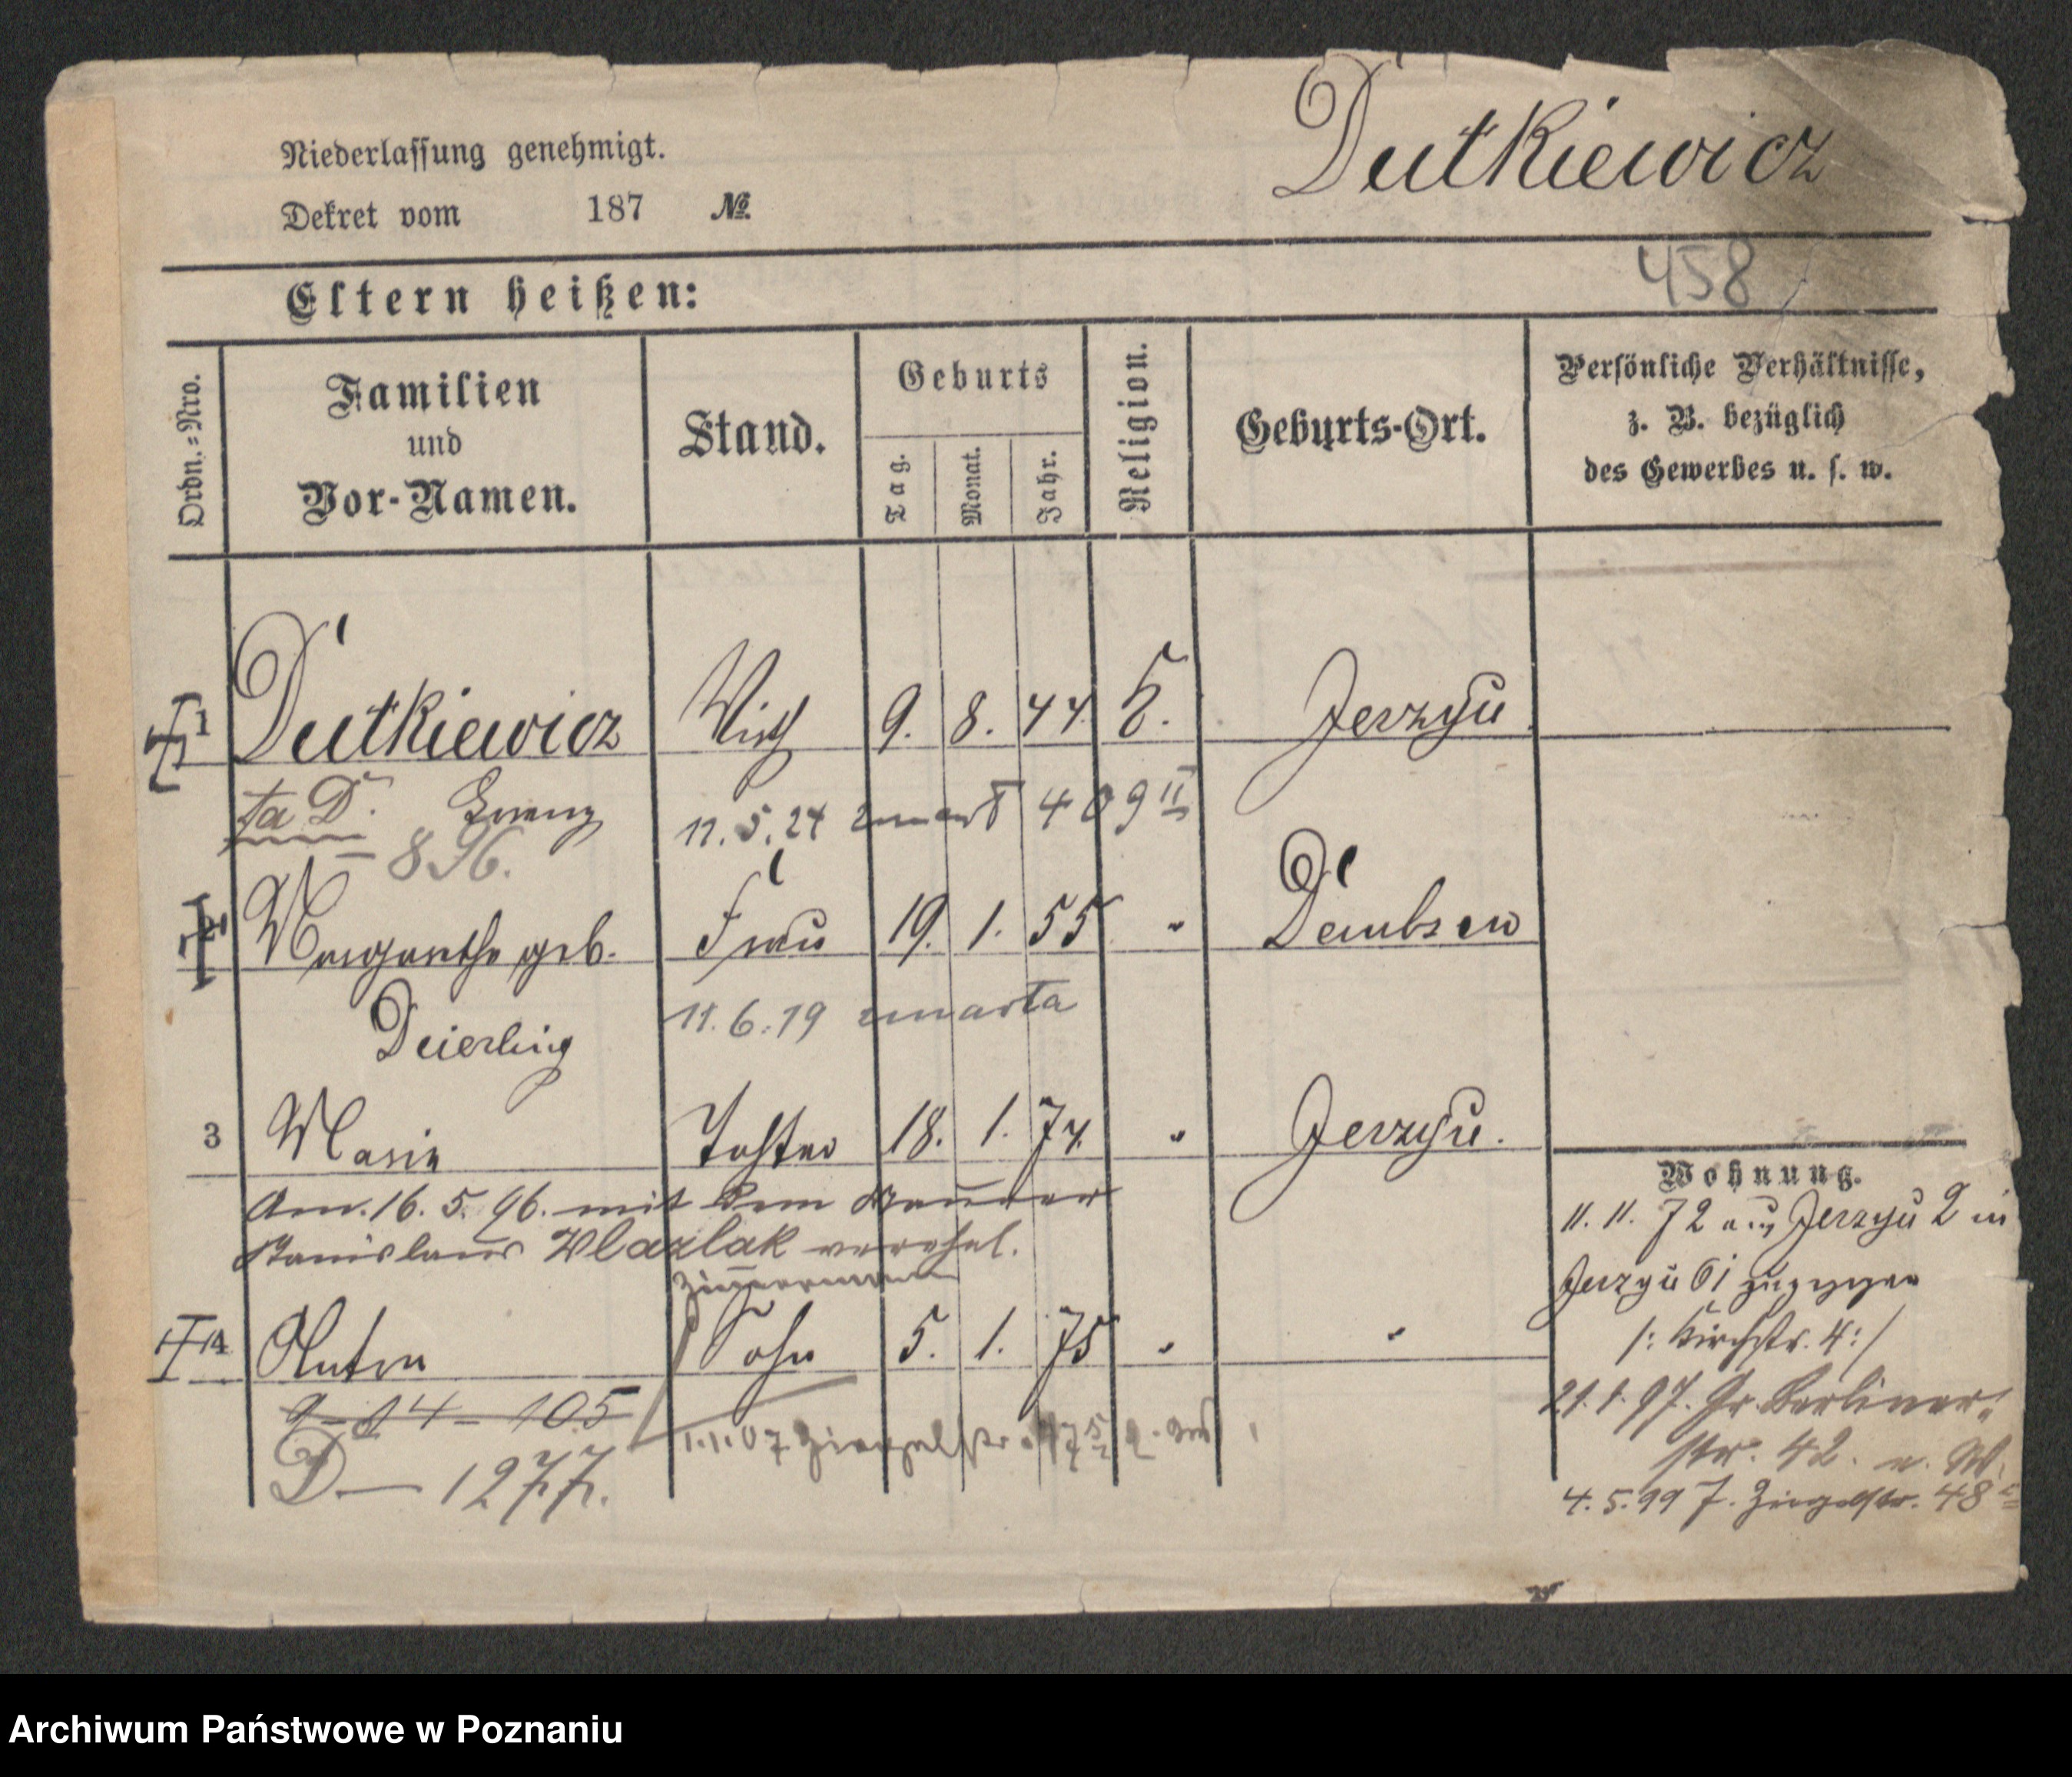 Dutkiewicz
Niederlassung genehmigt.
Dekret vom 187 №
458
Eltern heißen:
Ordn.=Nro.
Familien
und
Vor-Namen.
Stand.
Geburts
Tag.
Monat.
Jahr.
Religion.
Geburts-Ort.
Persönliche Verhältnisse,
z. B. bezüglich
des Gewerbes u. s. w.
1 Dutkiewicz Wirth 9. 8. 44. K. Jerzyu
Franz 11.5.24 zmarł 409 II
896.
2 Margarethe geb. Frau 19. 1. 55 " Dembsen
Deierling 11.6.19 zmarła
3 Marie Tochter 18. 1. 74. " Jerzyu.
Am 16. 5. 96. mit dem Maurer
Stanislaus Wlazlak verehel.
Zimmermann
4 Anton Sohn 5. 1. 75 " "
9-14-105
D — 1277.
1.1.07 Ziegelstr.
Wohnung.
11. 11. 72 aus Jerzyu 2 in
Jerzyu 61 zugezogen
/: Kirchstr. 4:/
21.1.97. Gr. Berliner-
str. 42.
4.5.99 Ziegelstr. 48
Archiwum Państwowe w Poznaniu